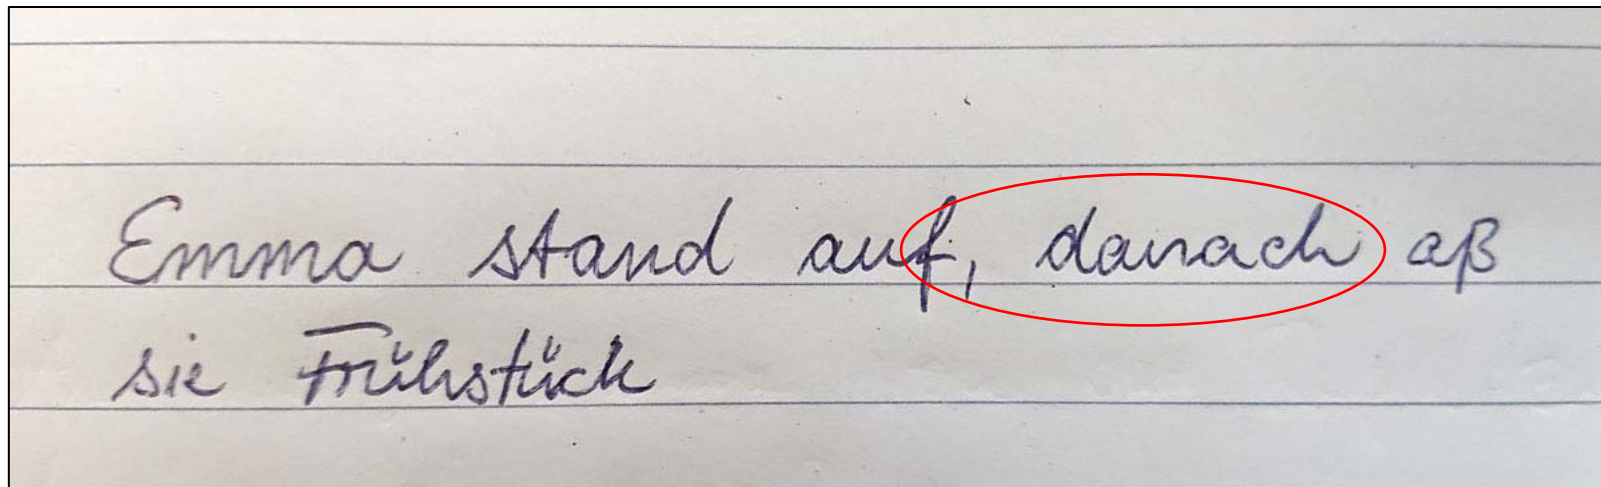 Emma stand auf, danach aß
sie Frühstück